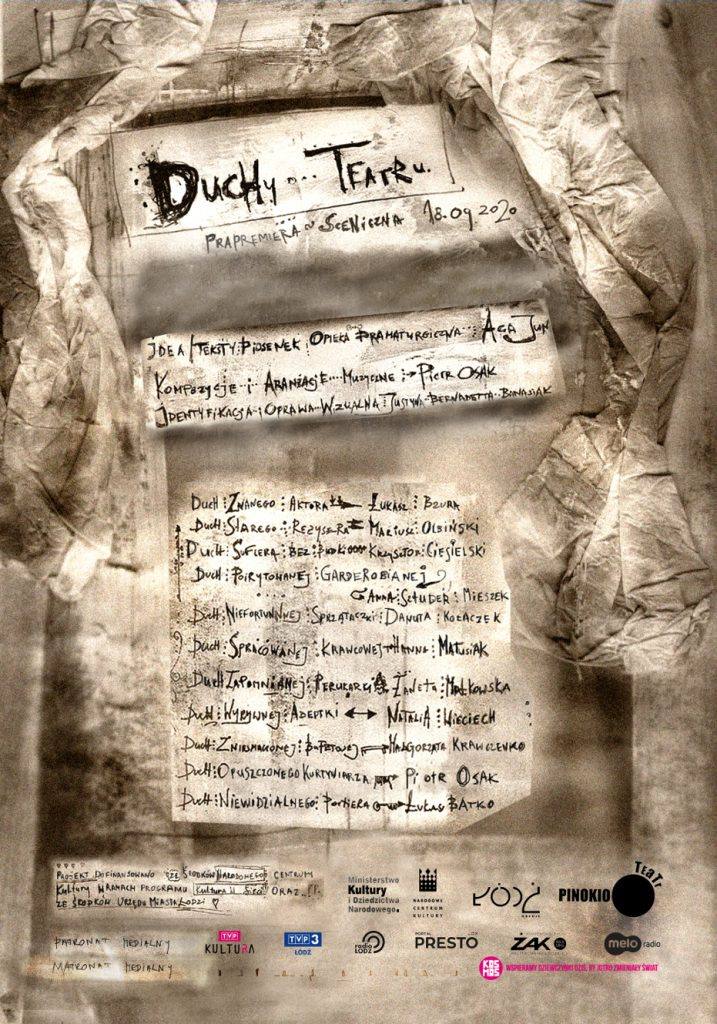 DUCHY TEATRU
PRAPREMIERA SCENICZNA 18.09.2020
IDEA / TEKSTY PIOSENEK OPIEKA DRAMATURGICZNA AGA JUN
KOMPOZYCJE I ARANŻACJE MUZYCZNE PIOTR OSAK
IDENTYFIKACJA I OPRAWA WIZUALNA JUSTYNA BERNADETTA BANASIAK
DUCH ZNANEGO AKTORA ŁUKASZ BZURA
DUCH STAREGO REŻYSERA MARIUSZ OLBIŃSKI
DUCH SUFLERA BEZ KRZYSZTOF CIESIELSKI
DUCH POIRYTOWANEJ GARDEROBIANEJ
ANNA SZTUDER MIESZEK
DUCH NIEFORTUNNEJ SPRZĄTACZKI DANUTA KOŁACZEK
DUCH SPRACOWANEJ KRAWCOWEJ HANNA MATUSIAK
DUCH ZAPOMNIANEJ PERUKARKI ŻANETA MAŁKOWSKA
DUCH WYRYWNEJ ADEPTKI NATALIA WIECIECH
DUCH BUFETOWEJ MAŁGORZATA KRAWCZENKO
DUCH OPUSZCZONEGO KURTYNIARZA PIOTR OSAK
DUCH NIEWIDZIALNEGO PORTIERA ŁUKASZ BATKO
PROJEKT DOFINANSOWANO ZE ŚRODKÓW NARODOWEGO CENTRUM
KULTURY W RAMACH PROGRAMU KULTURA W SIECI ORAZ
ZE ŚRODKÓW URZĘDU MIASTA ŁODZI
Ministerstwo
Kultury
i Dziedzictwa
Narodowego.
NARODOWE
CENTRUM
KULTURY
ŁÓDŹ
PINOKIO
TEATR
PATRONAT MEDIALNY
TVP
KULTURA
TVP3
ŁÓDŹ
radio
ŁÓDŹ
PORTAL
PRESTO
ŻAK
melo radio
MATRONAT MEDIALNY
KOSMOS
WSPIERAMY DZIEWCZYNKI DZIŚ, BY JUTRO ZMIENIAŁY ŚWIAT